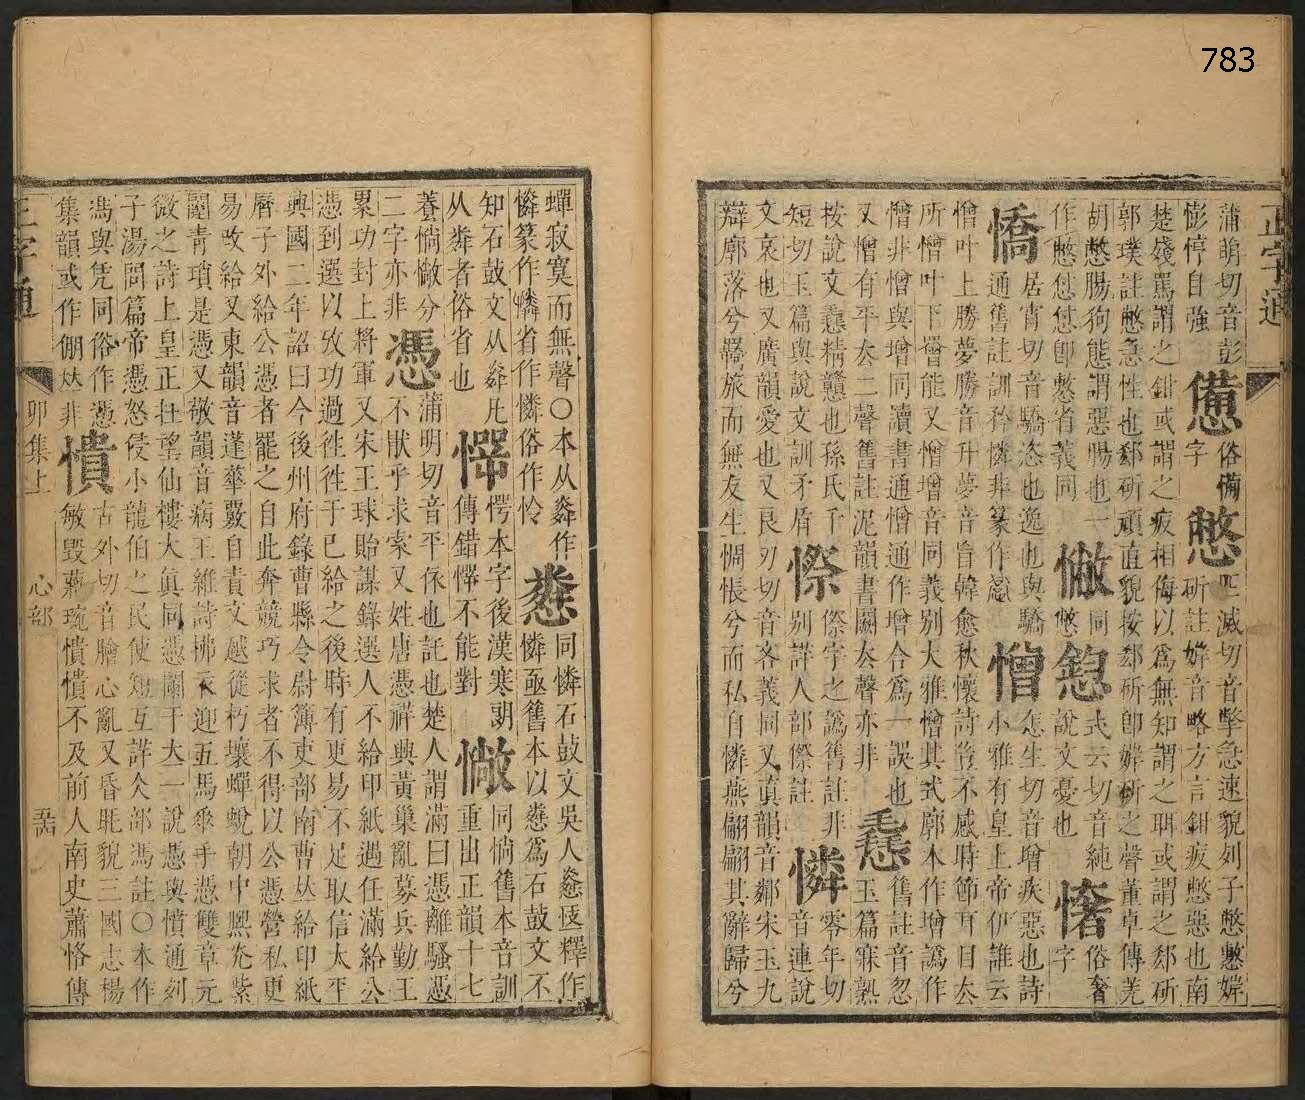 783
正字通
蒲萌切音彭
憉悙自強
憊
俗備字
憋
匹滅切音擎急速貌列子憋憋㛮
斫註㛮音略方言鉗疲憋惡也南
楚殘罵謂之鉗或謂之疲相侮以爲無知謂之眲或謂之郄斫
郭璞註憋急性也郄斫頑直貌按郄斫卽㛮斫之聲董卓傳羌
胡憋腸狗態謂惡腸也一
作憋怤怤卽憋省義同
憿
同憋
式云切音純
說文憂也
俗奢字
憍
居宵切音驕恣也逸也與驕
通舊註訓矜憐非篆作
憎
怎生切音增疾惡也詩
小雅有皇上帝伊誰云
憎叶上勝夢勝音升夢音旨韓愈秋懷詩不感時節耳目
所憎叶下層能又憎增音同義別大雅憎其式廓本作增譌作
憎非憎與增同讀書通憎通作增合爲一誤也
又憎有平去二聲舊註泥韻書闕去聲亦非
舊註音忽
玉篇寐熟
按說文惷精戇也孫氏千
短切玉篇與說文訓矛盾
憏
傺字之譌舊註非
別詳人部傺註
憐
零年切
音連說
文哀也又廣韻愛也又良刃切音吝義同又眞韻音鄰宋玉九
辯廓落兮羇旅而無友生惆悵兮而私自憐燕翩翩其辭歸兮
蟬寂寞而無聲○本从粦作
憐篆作憐省作憐俗作怜
同憐石鼓文吳人憐亟釋作
憐亟舊本以爲石鼓文不
知石鼓文从粦凡
从粦者俗省也
愕本字後漢寒朗
傳錯愕不能對
憿
同惝舊本音訓
重出正韻十七
養惝憿分
二字亦非
憑
蒲明切音平依也託也楚人謂滿曰憑離騷憑
不猒乎求索又姓唐憑祥興黃巢亂募兵勤王
累功封上將軍又宋王球貽謀錄選人不給印紙遇任滿給公
憑到選以攷功過徃徃于已給之後時有更易不足取信太平
興國二年詔曰今後州府錄曹縣令尉簿吏部南曹竝給印紙
曆子外給公憑者罷之自此奔競巧求者不得以公憑營私更
易改給又東韻音蓬華覈自責文越從朽壤蟬蛻朝中熙充紫
闥青瑣是憑又敬韻音病王維詩拂衣迎五馬垂手憑雙童元
微之詩上皇正在望仙樓太眞同憑闌干去一說憑與憤通列
子湯問篇帝憑怒侵小龍伯之民使短互詳人部馮註○本作
馮與凭同俗作憑
集韻或作倗竝非
憒
古外切音膾心亂又昏眊貌三國志楊
敏毀蔣琬憒憒不及前人南史蕭恪傳
正字通
卯集上
心部